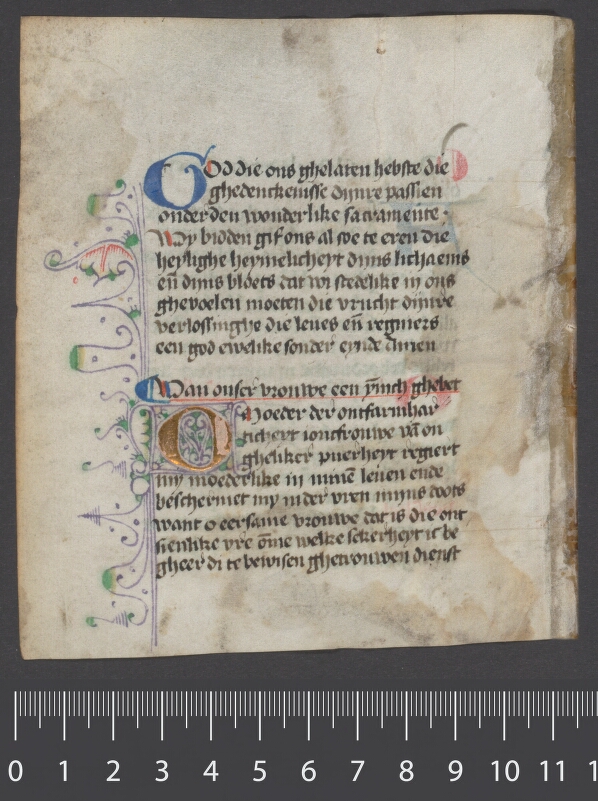 God die ons ghelaten hebste die
ghedenckenisse dijnre passien
onder den wonderlike sacramente
Wy bidden gif ons al soe te eren die
heylighe heymelicheyt dijns lichaems
eñ dijns bloets dat wi stedelike in ons
ghevoelen moeten die vrucht dijnre
verlossinghe die leves eñ regniers
een god ewelike sonder eynde Amen
Van onser vrouwe een ghebet
O Moeder der ontfarmhar
ticheyt ioncfrouwe vā on
gheliker puerheyt regiert
my moederlike in minē leven ende
beschermet my in der vren mijns doots
want o eersame vrouwe dat is die ont
sienlike vre ōme welke sekerheyt ic be
gheer di te bewisen ghetrouwen dienst
0 1 2 3 4 5 6 7 8 9 10 11 1